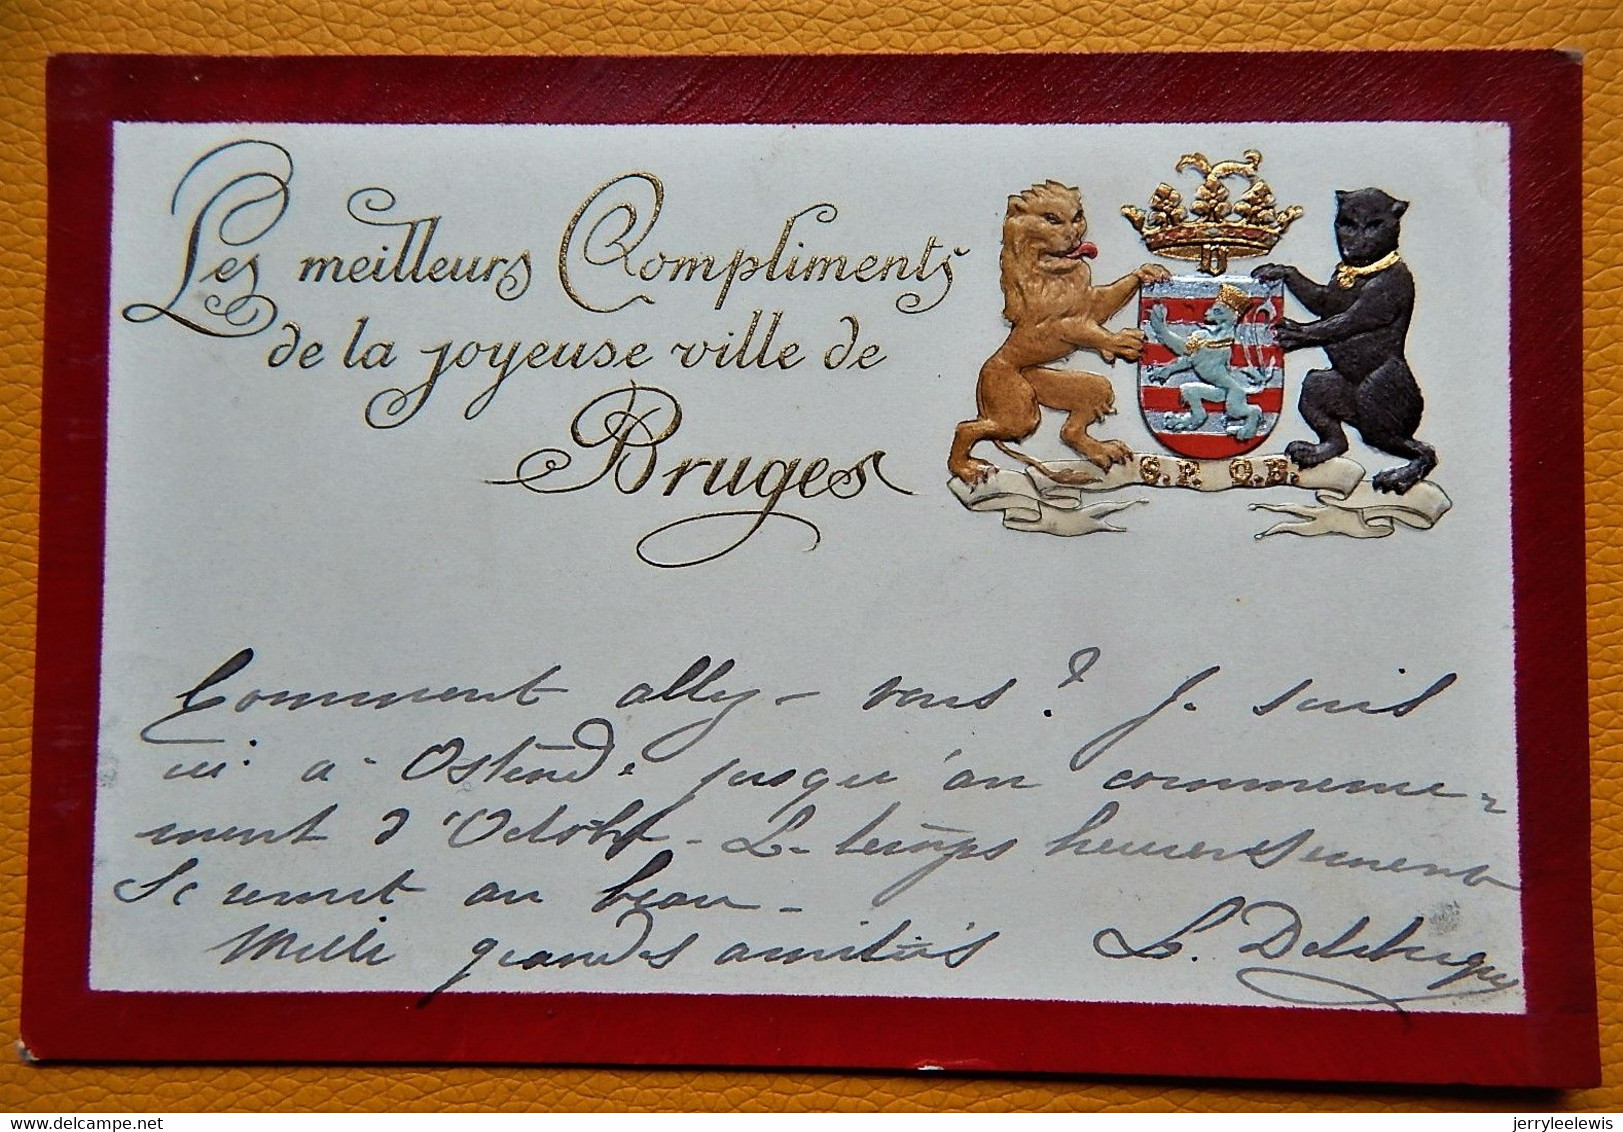 Les meilleurs Compliments
de la joyeuse ville de
Bruges
S. P. Q. B.
Comment allez-vous ? Je suis
ici à Ostende jusqu'au commence-
ment d'Octobre. Le temps heureusement
se remet au beau.
Mille grandes amitiés L.
jerryleelewis